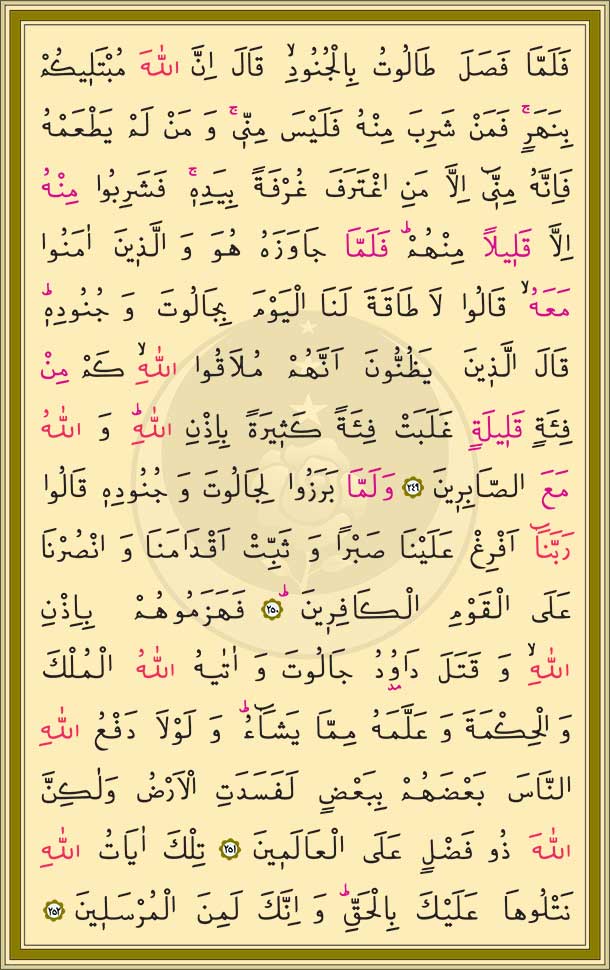 فَلَمَّا فَصَلَ طَالُوتُ بِالْجُنُودِۙ قَالَ اِنَّ اللّٰهَ مُبْتَل۪يكُمْ
بِنَهَرٍۚ فَمَنْ شَرِبَ مِنْهُ فَلَيْسَ مِنّ۪يۚ وَ مَنْ لَمْ يَطْعَمْهُ
فَاِنَّهُ مِنّ۪ٓي اِلَّا مَنِ اغْتَرَفَ غُرْفَةً بِيَدِه۪ۚ فَشَرِبُوا مِنْهُ
اِلَّا قَل۪يلًا مِنْهُمْۜ فَلَمَّا جَاوَزَهُ هُوَ وَ الَّذ۪ينَ اٰمَنُوا
مَعَهُۙ قَالُوا لَا طَاقَةَ لَنَا الْيَوْمَ بِجَالُوتَ وَ جُنُودِه۪ۜ
قَالَ الَّذ۪ينَ يَظُنُّونَ اَنَّهُمْ مُلَاقُوا اللّٰهِۙ كَمْ مِنْ
فِئَةٍ قَل۪يلَةٍ غَلَبَتْ فِئَةً كَث۪يرَةً بِاِذْنِ اللّٰهِۜ وَ اللّٰهُ
مَعَ الصَّابِر۪ينَ ﴿٢٤٩﴾ وَلَمَّا بَرَزُوا لِجَالُوتَ وَ جُنُودِه۪ قَالُوا
رَبَّنَٓا اَفْرِغْ عَلَيْنَا صَبْرًا وَ ثَبِّتْ اَقْدَامَنَا وَ انْصُرْنَا
عَلَى الْقَوْمِ الْكَافِر۪ينَۜ ﴿٢٥٠﴾ فَهَزَمُوهُمْ بِاِذْنِ
اللّٰهِۙ وَ قَتَلَ دَاوُ۫دُ جَالُوتَ وَ اٰتٰيهُ اللّٰهُ الْمُلْكَ
وَ الْحِكْمَةَ وَ عَلَّمَهُ مِمَّا يَشَٓاءُۜ وَ لَوْلَا دَفْعُ اللّٰهِ
النَّاسَ بَعْضَهُمْ بِبَعْضٍ لَفَسَدَتِ الْاَرْضُ وَلٰكِنَّ
اللّٰهَ ذُو فَضْلٍ عَلَى الْعَالَم۪ينَ ﴿٢٥١﴾ تِلْكَ اٰيَاتُ اللّٰهِ
نَتْلُوهَا عَلَيْكَ بِالْحَقِّۜ وَ اِنَّكَ لَمِنَ الْمُرْسَل۪ينَ ﴿٢٥٢﴾